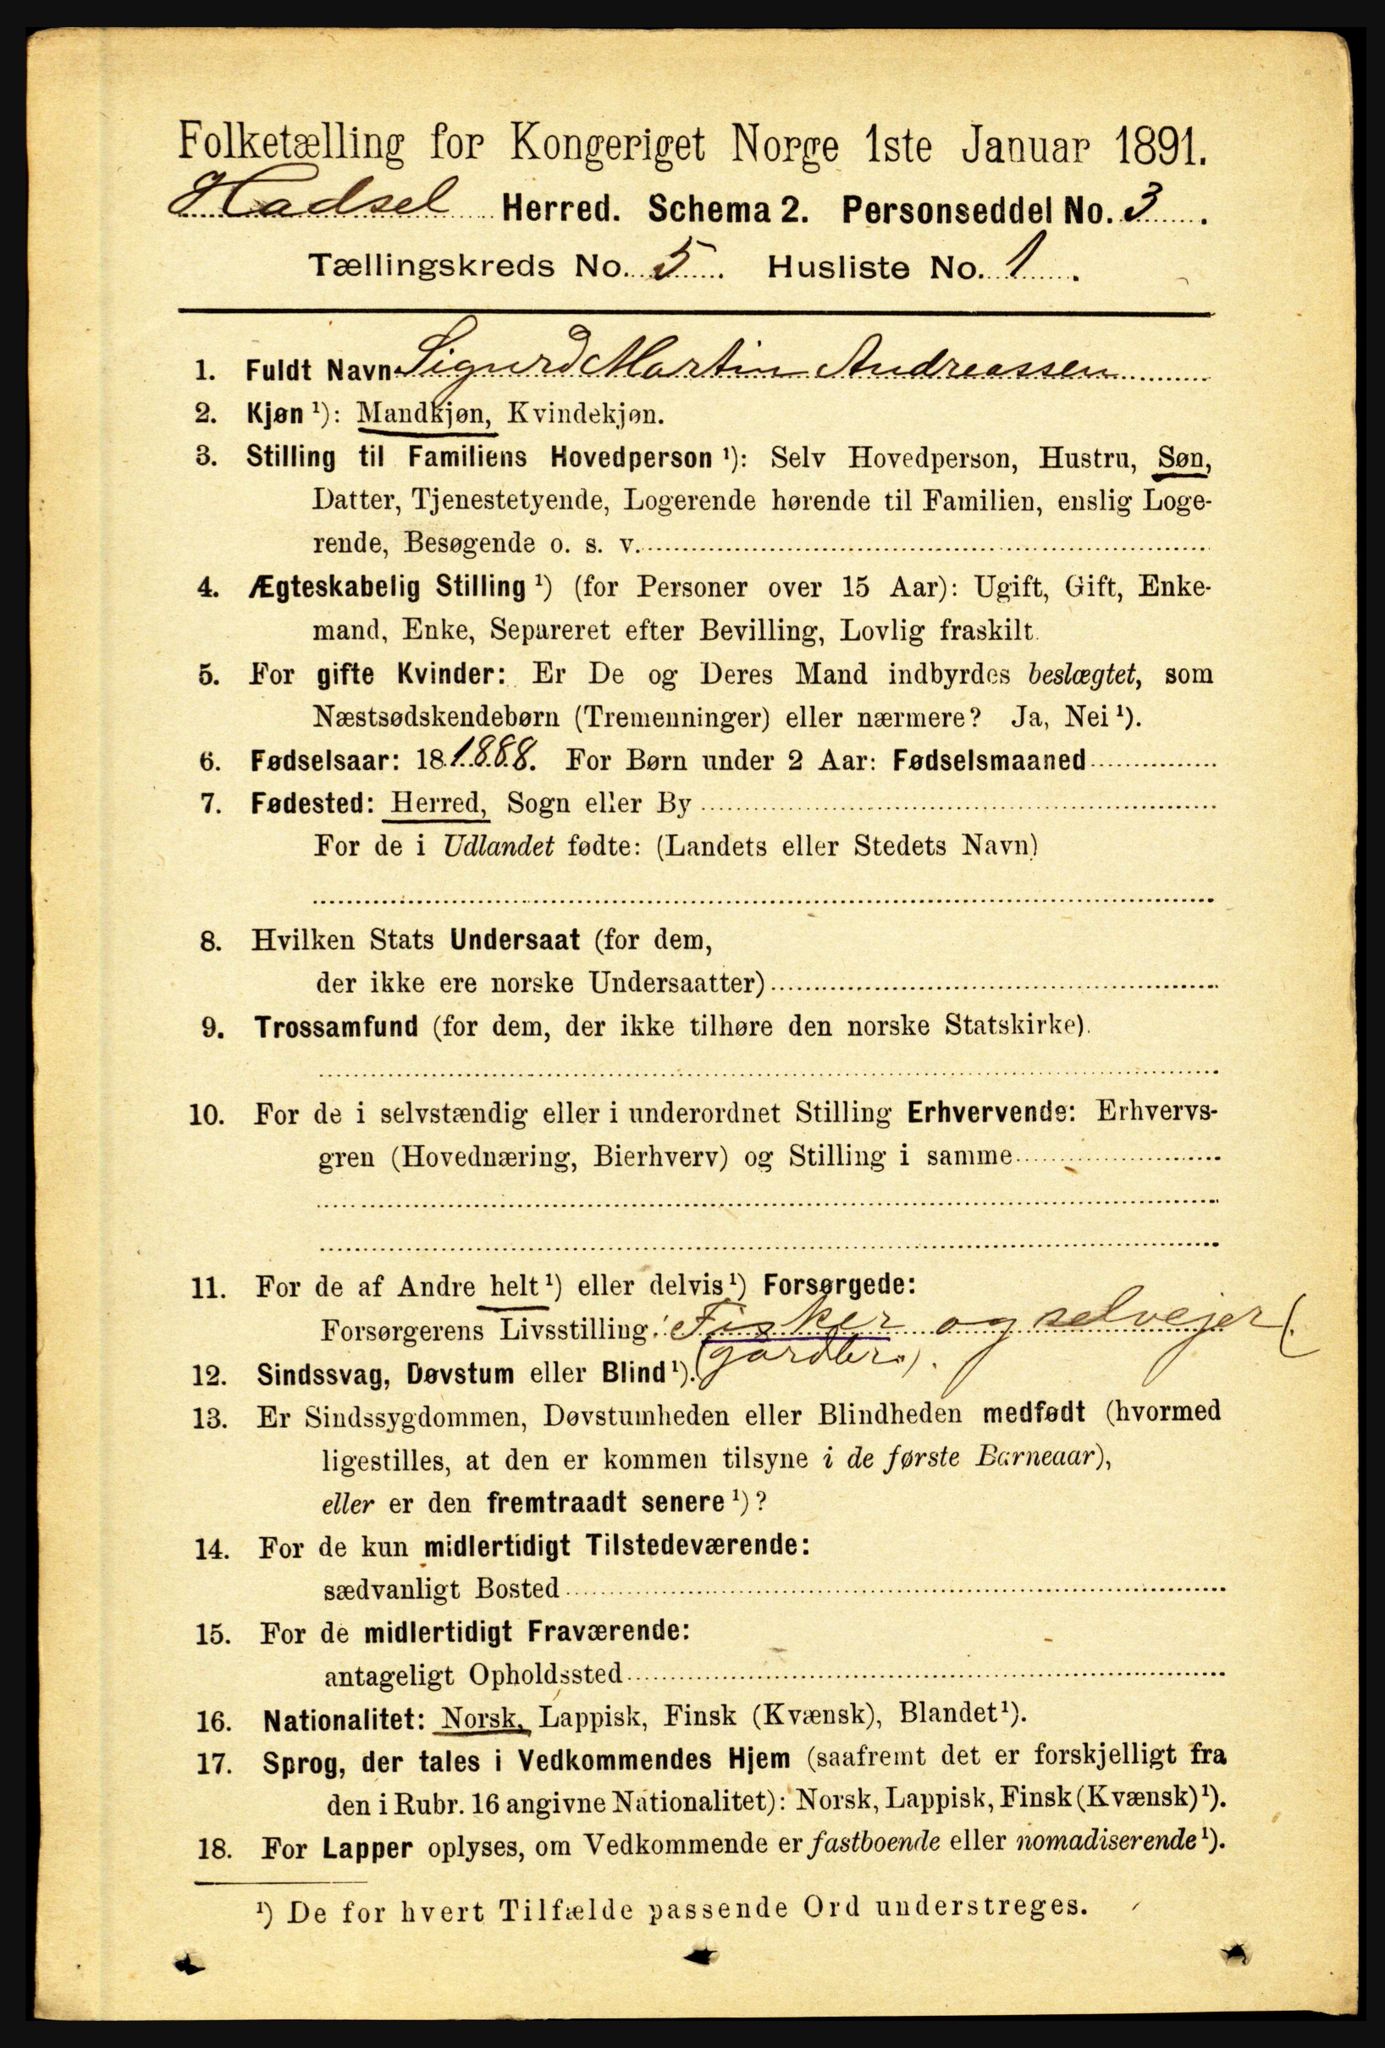 Folketælling for Kongeriget Norge 1ste Januar 1891.
Hadsel Herred. Schema 2. Personseddel No. 3.
Tællingskreds No. 5. Husliste No. 1.
1. Fuldt Navn Sigurd Martin Andreassen
2. Kjøn ¹): Mandkjøn, Kvindekjøn.
3. Stilling til Familiens Hovedperson ¹): Selv Hovedperson, Hustru, Søn,
Datter, Tjenestetyende, Logerende hørende til Familien, enslig Loge-
rende, Besøgende o. s. v.
4. Ægteskabelig Stilling ¹) (for Personer over 15 Aar): Ugift, Gift, Enke-
mand, Enke, Separeret efter Bevilling, Lovlig fraskilt.
5. For gifte Kvinder: Er De og Deres Mand indbyrdes beslægtet, som
Næstsødskendebørn (Tremenninger) eller nærmere? Ja, Nei ¹).
6. Fødselsaar: 18 1888. For Børn under 2 Aar: Fødselsmaaned
7. Fødested: Herred, Sogn eller By
For de i Udlandet fødte: (Landets eller Stedets Navn)
8. Hvilken Stats Undersaat (for dem,
der ikke ere norske Undersaatter)
9. Trossamfund (for dem, der ikke tilhøre den norske Statskirke).
10. For de i selvstændig eller i underordnet Stilling Erhvervende: Erhvervs-
gren (Hovednæring, Bierhverv) og Stilling i samme
11. For de af Andre helt ¹) eller delvis ¹) Forsørgede:
Forsørgerens Livsstilling: Fisker og selvejer (.
(gårdbr.).
12. Sindssvag, Døvstum eller Blind ¹).
13. Er Sindssygdommen, Døvstumheden eller Blindheden medfødt (hvormed
ligestilles, at den er kommen tilsyne i de første Barneaar),
eller er den fremtraadt senere ¹)?
14. For de kun midlertidigt Tilstedeværende:
sædvanligt Bosted
15. For de midlertidigt Fraværende:
antageligt Opholdssted
16. Nationalitet: Norsk, Lappisk, Finsk (Kvænsk), Blandet ¹).
17. Sprog, der tales i Vedkommendes Hjem (saafremt det er forskjelligt fra
den i Rubr. 16 angivne Nationalitet): Norsk, Lappisk, Finsk (Kvænsk) ¹).
18. For Lapper oplyses, om Vedkommende er fastboende eller nomadiserende ¹).
¹) De for hvert Tilfælde passende Ord understreges.